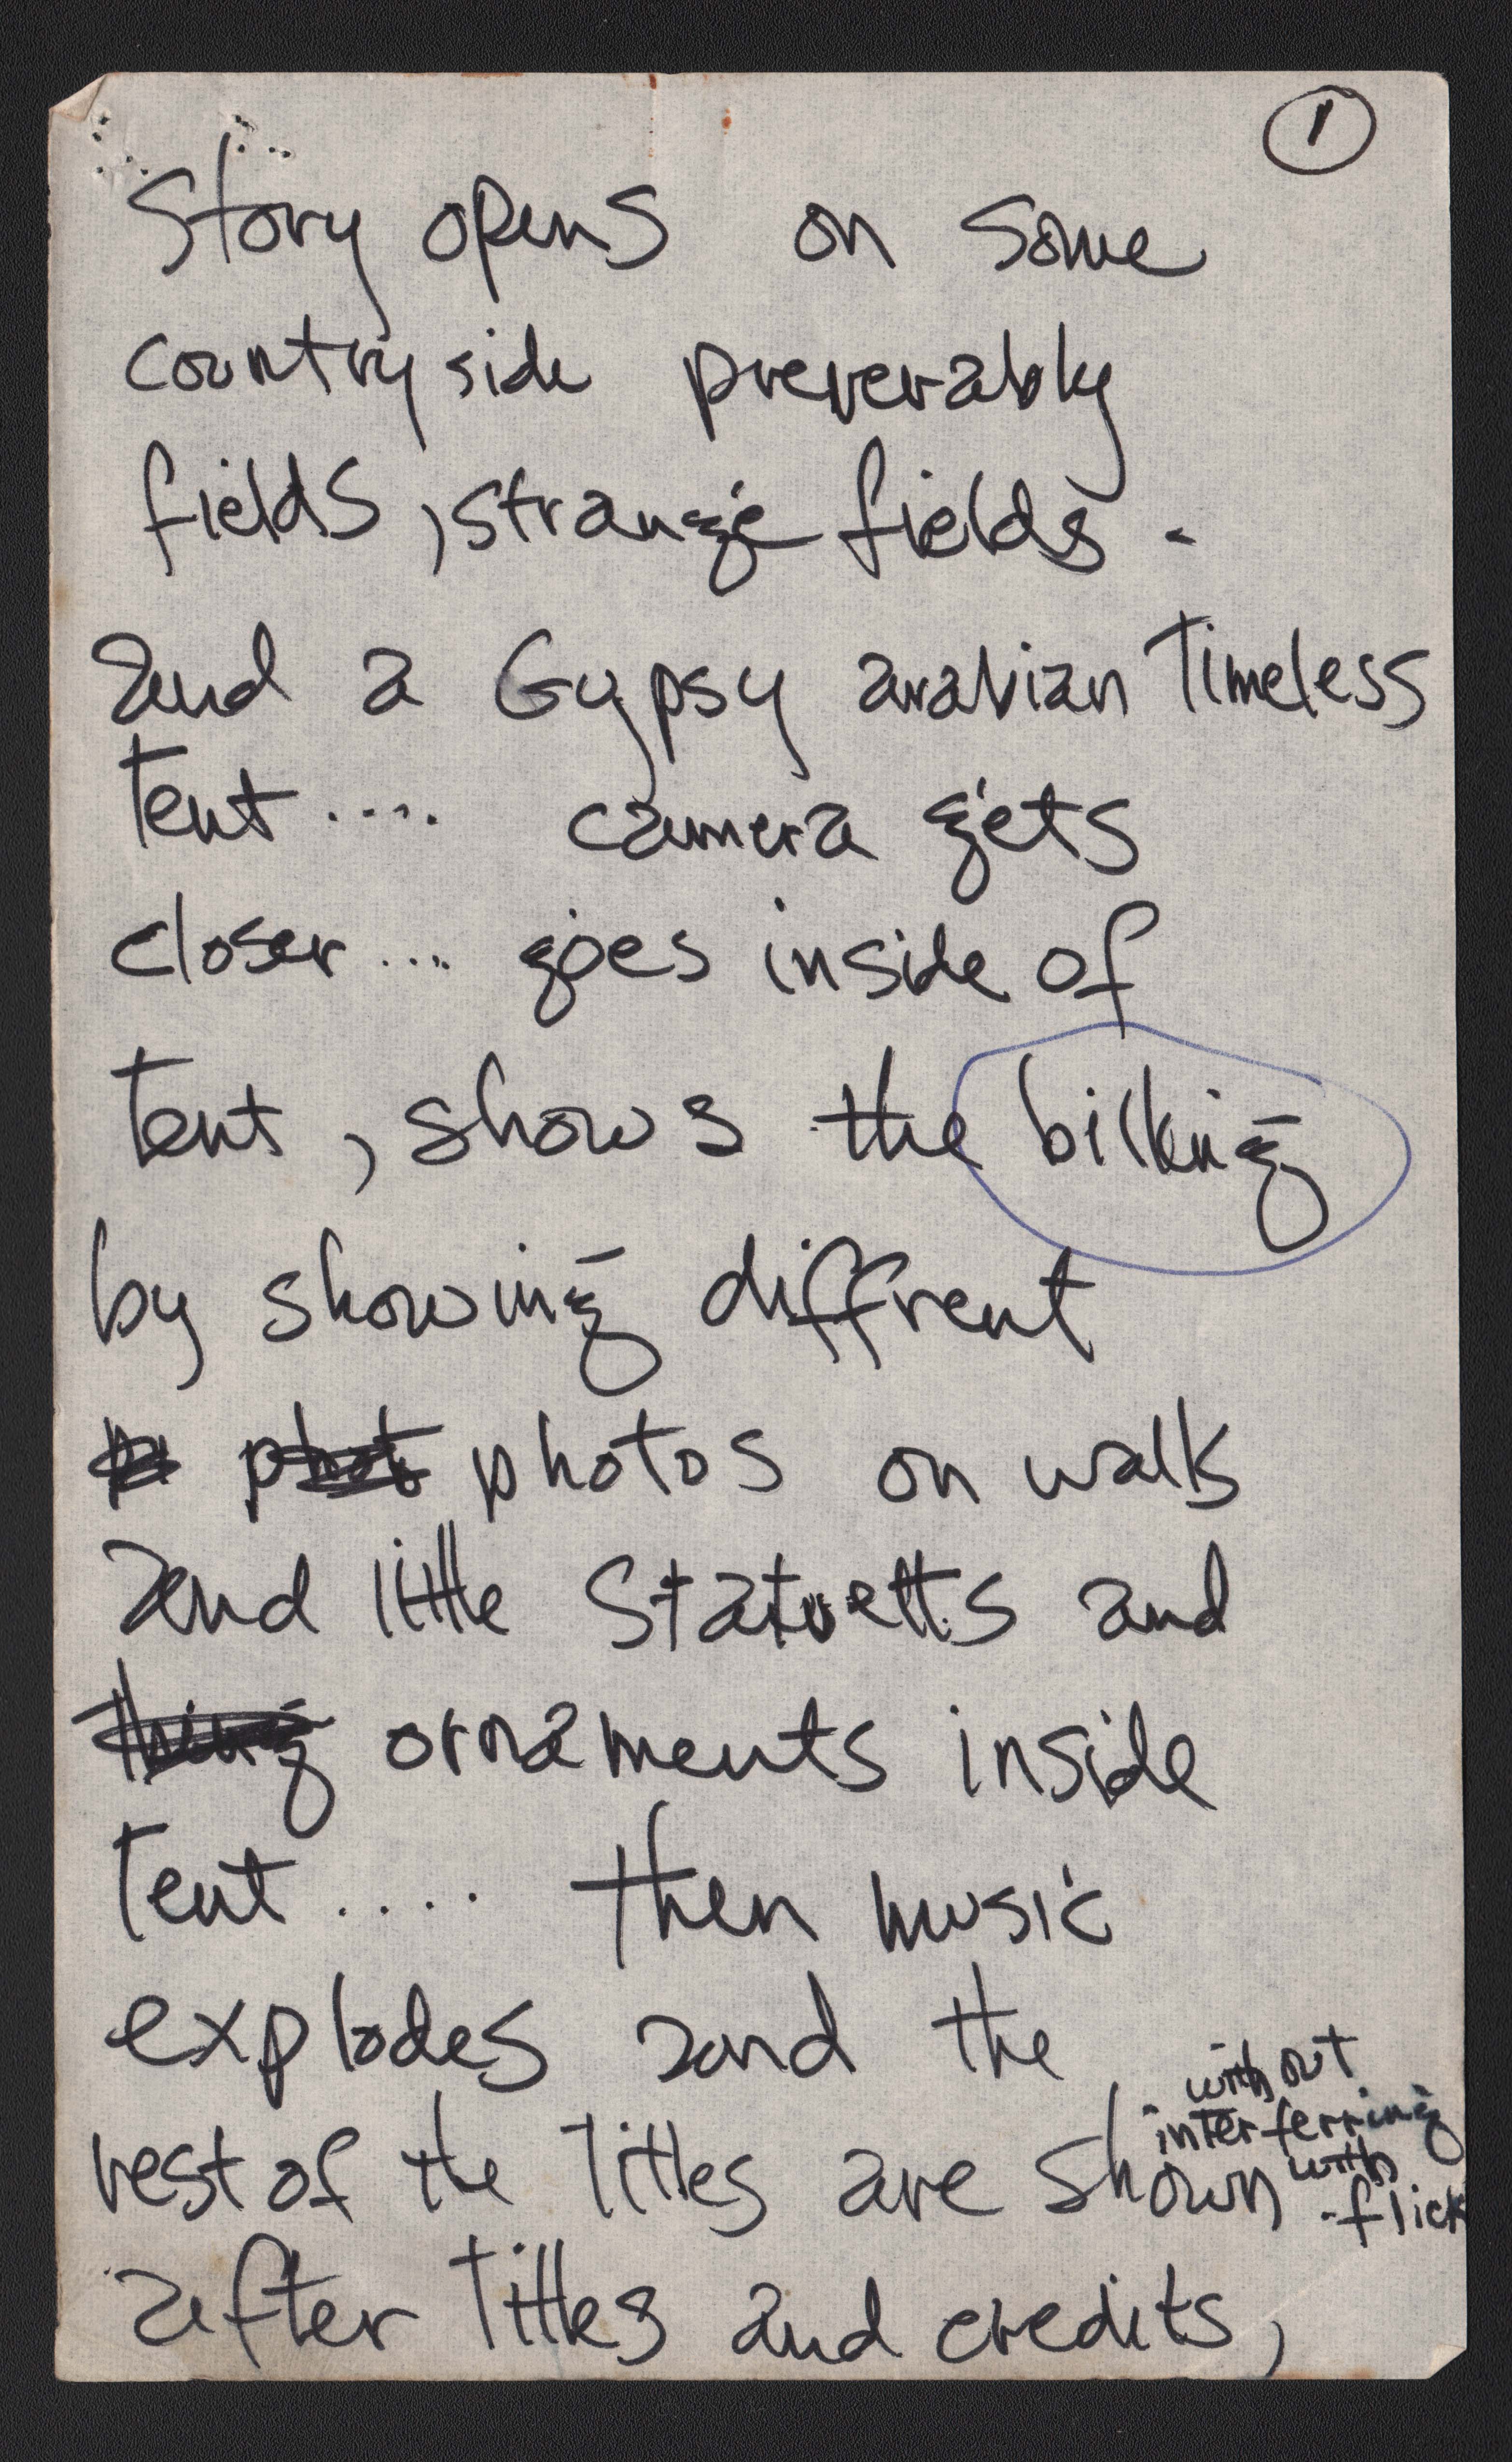 1
Story opens on some
countryside preverably
fields, strange fields.
and a Gypsy arabian Timeless
Tent .... camera gets
closer ... goes inside of
Tent, shows the bilking
by showing diffrent
phot photos on walls
and little Statuetts and
thing ornaments inside
Tent .... then music
explodes and the
rest of the Titles are shown
without
interferring
with
flick
after Titles and credits,